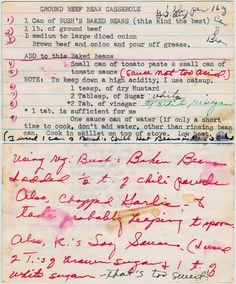 GROUND BEEF BEAN CASSEROLE
1 Can of BUSH'S BAKED BEANS (this kind the best)
1 lb. of ground beef
1 medium to large diced onion
Brown beef and onion and pour off grease.
ADD to this Baked Beans
Small can of tomato paste & small can of
tomato sauce (sauce not too acid)
NOTE: To keep down a high acidity, I use catsup.
1 teasp. of dry Mustard
2 Tablesp. of Sugar white
*2 Tab. of vinegar
* 1 tab. is sufficient for me
One sauce can of water (if only a short
time to cook, don't add water, other than rinsing bean
can. Cook in skillet on top of stove, low heat
Using reg. Bush's Baked Beans
I added 1 t. of chili powder
Also, chopped Garlic, &
taste, probably heaping t spoon.
Also, K.'s Soy Sauce. (I use
2 T. of brown sugar & 1 t. of
white sugar - that's too sweet)